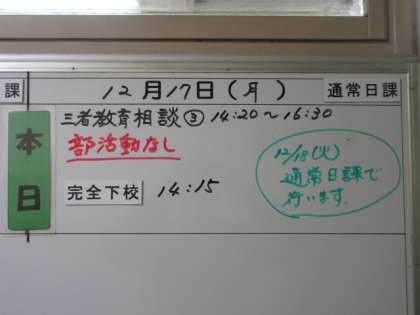 課 12月17日(月) 通常日課
本日
三者教育相談③ 14:20~16:30
部活動なし
完全下校 14:15
12/18(火)
通常日課で
行います.